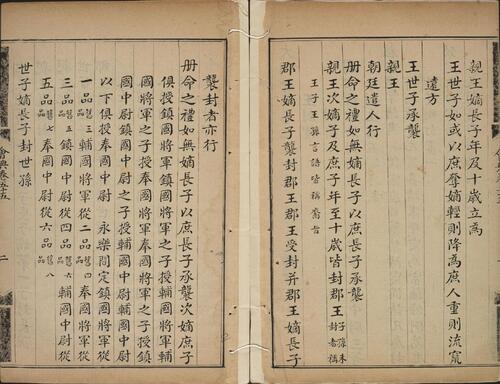 親王嫡長子年及十歲立爲
王世子如或以庶奪嫡輕則降爲庶人重則流竄
遠方
王世子承襲
親王
朝廷遣人行
册命之禮如無嫡長子以庶長子承襲
親王次嫡子及庶子年至十歲皆封郡王子孫未封者稱
王子王孫言語皆稱裔旨
郡王嫡長子襲封郡王郡王受封并郡王嫡長子
襲封者亦行
册命之禮如無嫡子以庶長子承襲次嫡庶子
俱授鎮國將軍鎮國將軍之子授輔國將軍輔
國將軍之子授奉國將軍奉國將軍之子授鎮
國中尉鎮國中尉之子授輔國中尉輔國中尉
以下俱授奉國中尉 永樂間定鎮國將軍從
一品舊三品輔國將軍從二品舊四品奉國將軍從
三品舊五品鎮國中尉從四品舊六品輔國中尉從
五品舊七品奉國中尉從六品舊八品
世子嫡長子封世孫
會典卷五十五
二